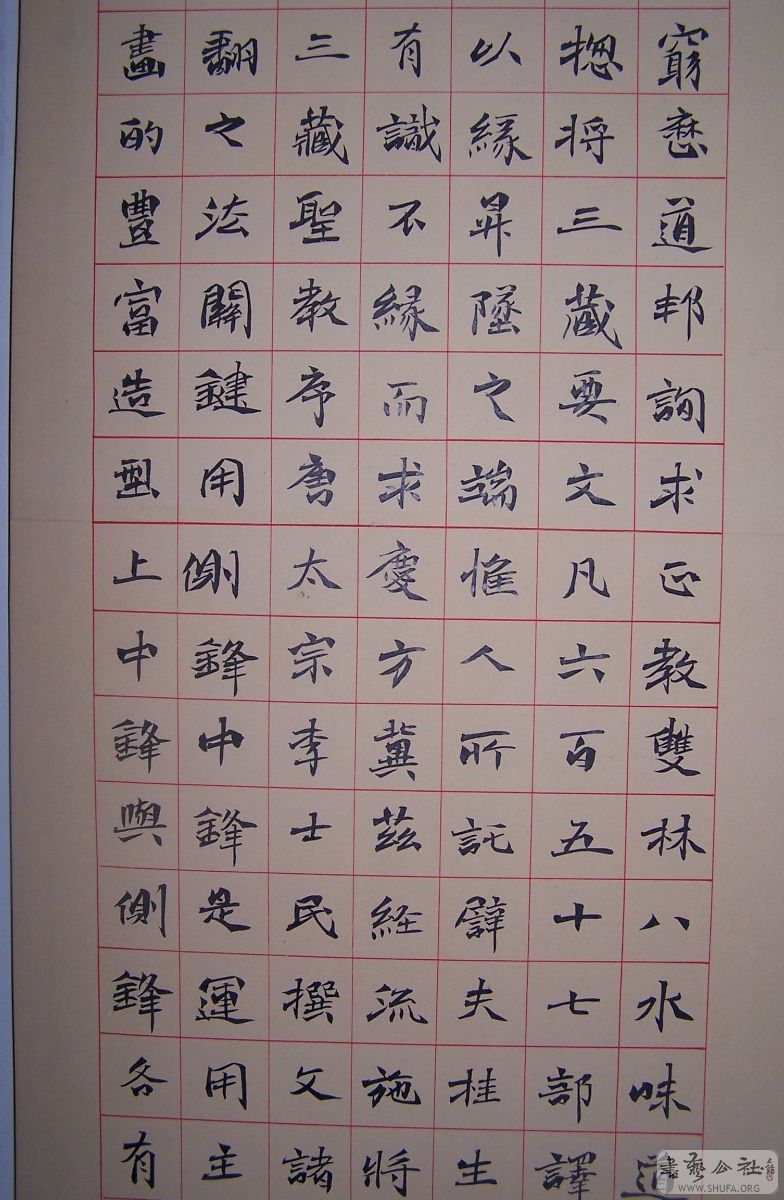 窮歷道邦詢求正教雙林八水味道
揔将三藏要文凡六百五十七部譯
以緣昇墜之端惟人所託譬夫桂生
有識不緣而求慶方冀茲経流施將
三藏聖教序唐太宗李士民撰文諸
翻之法關鍵用側鋒中鋒是運用主
畫的豐富造型上中鋒與側鋒各有
書藝公社
WWW.SHUFA.ORG